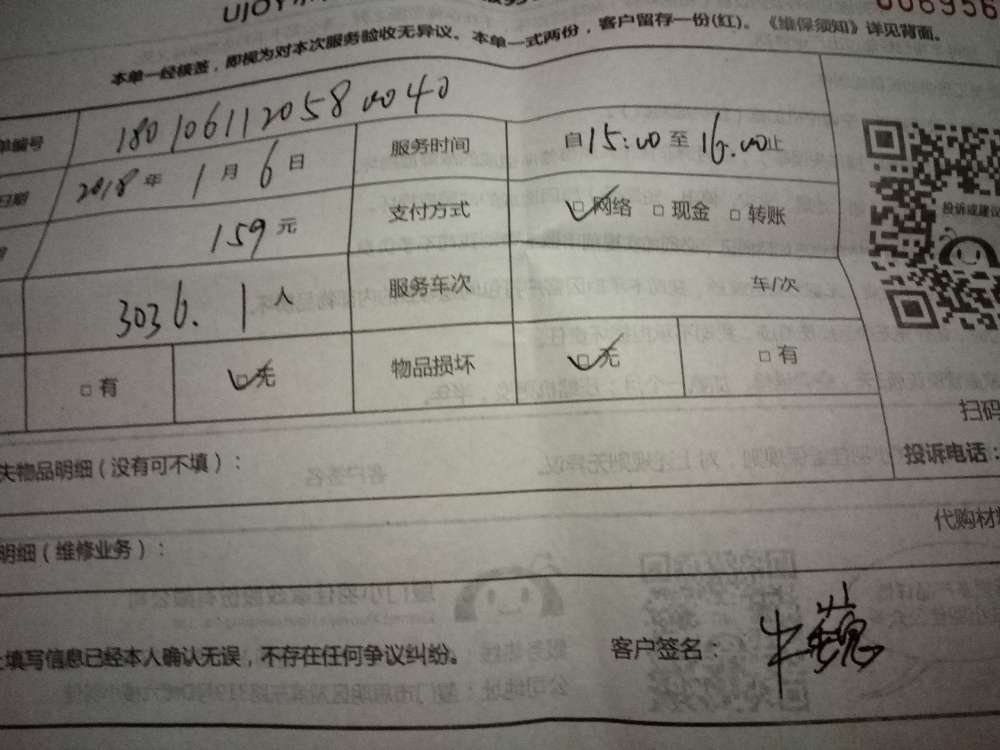 UJOY
006956
本单一经核签，即视为对本次服务验收无异议。本单一式两份，客户留存一份(红)。《维保须知》详见背面。
单编号 1801061120580040
日期 2018年 1月 6日 服务时间 自15:00至16:00止
159元 支付方式 网络 现金 转账
3036. 1人 服务车次 车/次
有 无 物品损坏 无 有
投诉或建议
扫码
失物品明细（没有可不填）：
投诉电话：
代购材料
明细（维修业务）：
上填写信息已经本人确认无误，不存在任何争议纠纷。 客户签名：